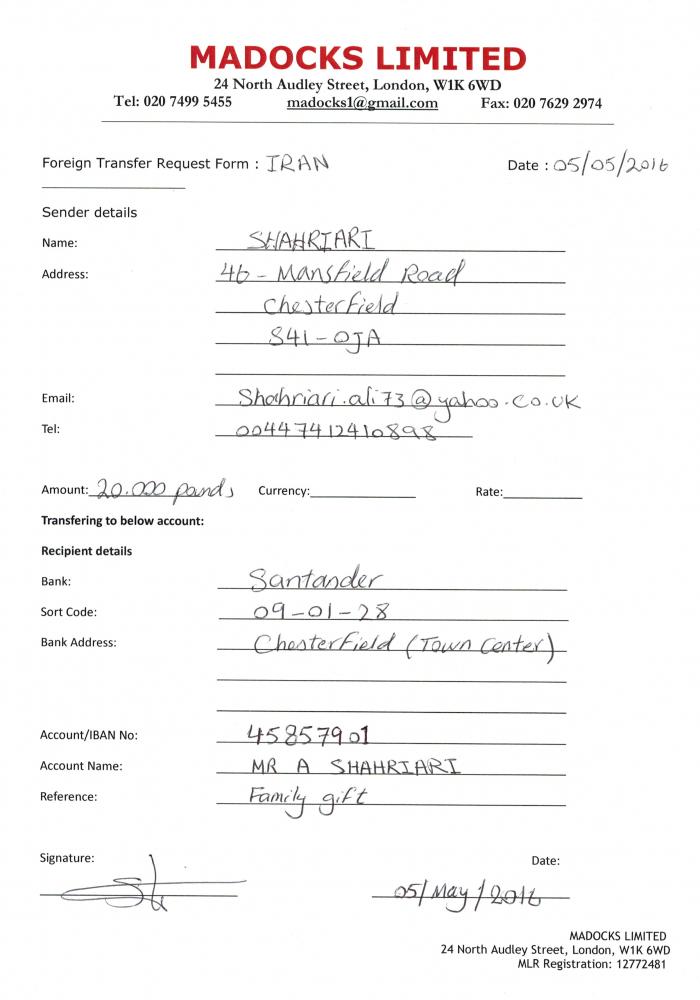 MADOCKS LIMITED
24 North Audley Street, London, W1K 6WD
Tel: 020 7499 5455 madocks1@gmail.com Fax: 020 7629 2974
Foreign Transfer Request Form : IRAN Date : 05/05/2016
Sender details
Name: SHAHRIARI
Address: 46 - Mansfield Road
Chesterfield
S41-0JA
Email: Shahriari.ali73@yahoo.co.uk
Tel: 00447412410898
Amount: 20.000 pands Currency: Rate:
Transfering to below account:
Recipient details
Bank: Santander
Sort Code: 09-01-28
Bank Address: Chesterfield (Town Center)
Account/IBAN No: 45857901
Account Name: MR A SHAHRIARI
Reference: Family gift
Signature: Date:
05/May/2016
MADOCKS LIMITED
24 North Audley Street, London, W1K 6WD
MLR Registration: 12772481